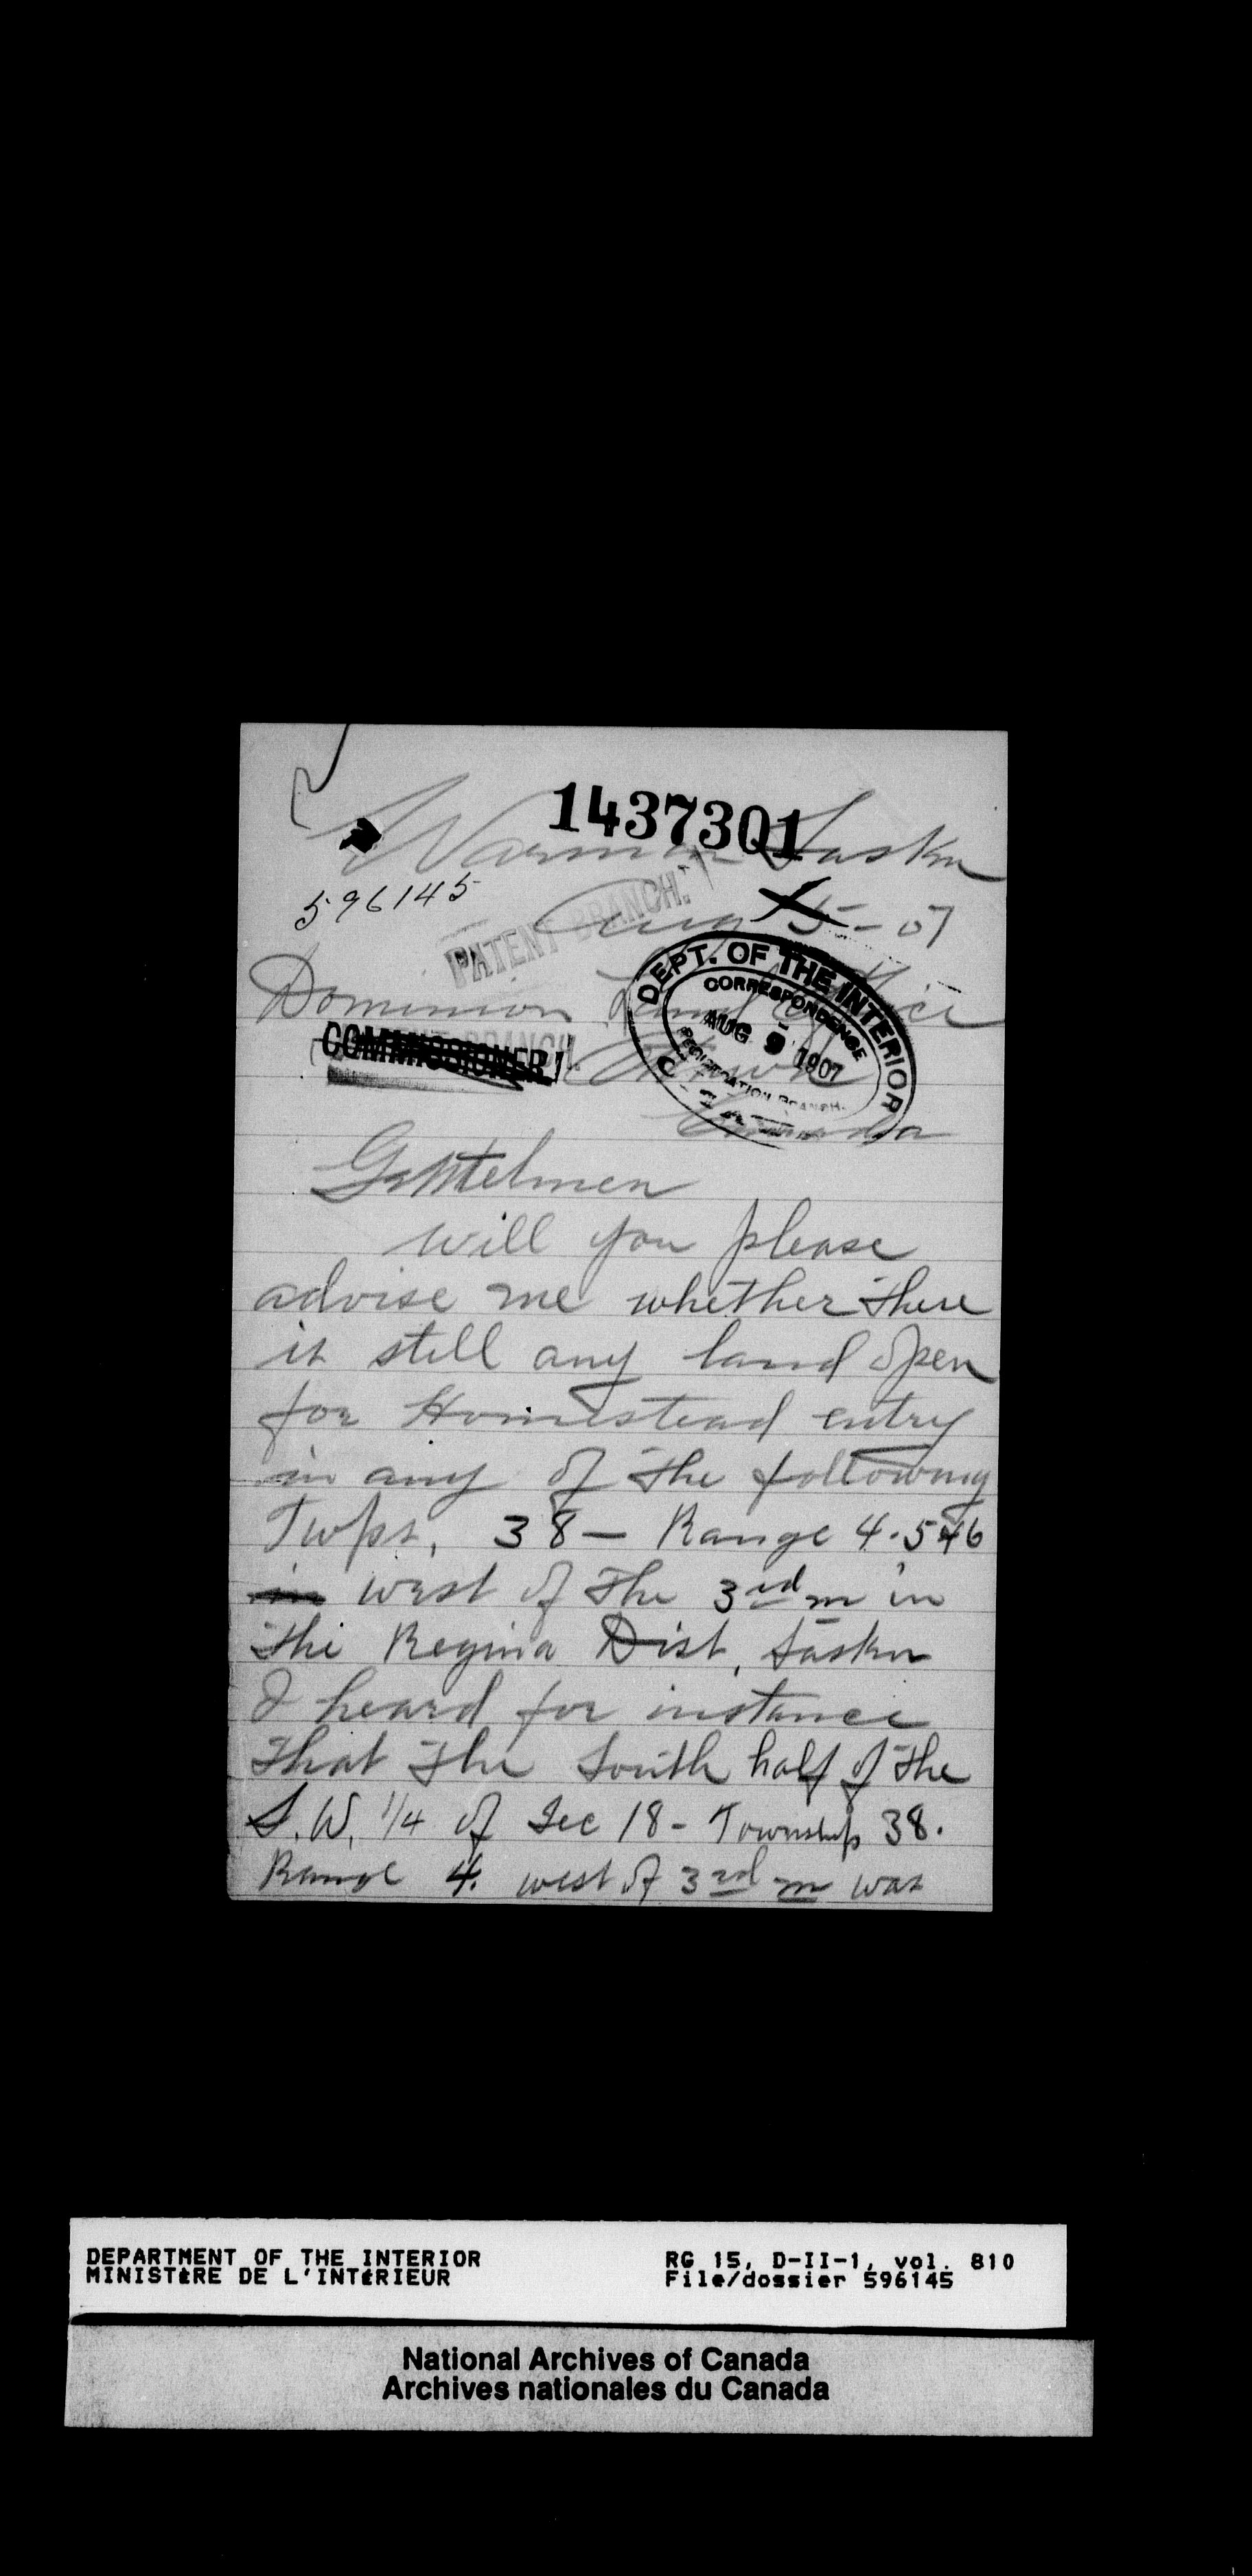 1437301
Warman Saskn
596145
Aug 5 - 07
PATENT BRANCH.
Dominion Land Office
DEPT. OF THE INTERIOR
CORRESPONDENCE
AUG 9 1907
COMMISSIONER
Ottawa
Canada
Genttelmen
will you please
advise me whether there
is still any land open
for Homestead entry
in any of the following
Twps, 38 - Range 4.5 & 6
in west of the 3rd m in
the Regina Dist, Saskn
I heard for instance
that the South half of the
S.W. 1/4 of Sec 18 - Township 38.
Range 4. west of 3rd m was
DEPARTMENT OF THE INTERIOR
MINISTÈRE DE L'INTÉRIEUR
RG 15, D-II-1, vol. 810
File/dossier 596145
National Archives of Canada
Archives nationales du Canada